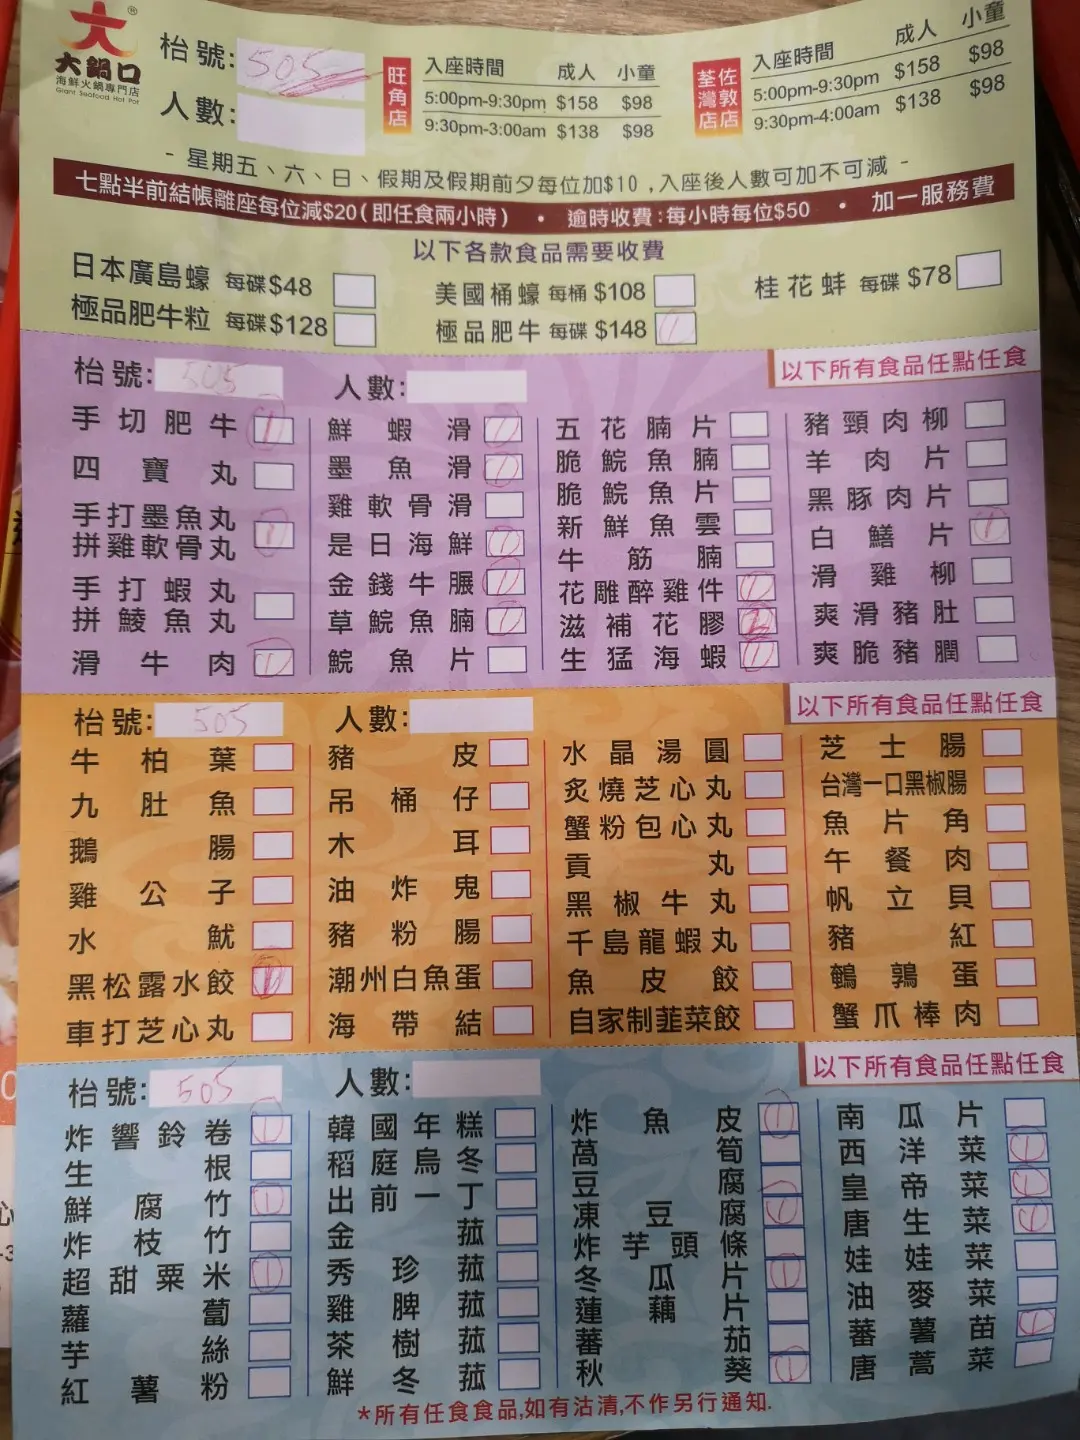 大®
大鍋口
海鮮火鍋專門店
Giant Seafood Hot Pot
枱號: 505
人數:
旺角店
入座時間 成人 小童
5:00pm-9:30pm $158 $98
9:30pm-3:00am $138 $98
荃灣店 佐敦店
入座時間 成人 小童
5:00pm-9:30pm $158 $98
9:30pm-4:00am $138 $98
- 星期五、六、日、假期及假期前夕每位加$10 ,入座後人數可加不可減 -
七點半前結帳離座每位減$20(即任食兩小時) • 逾時收費:每小時每位$50 • 加一服務費
以下各款食品需要收費
日本廣島蠔 每碟$48
美國桶蠔 每桶 $108
桂花蚌 每碟 $78
極品肥牛粒 每碟$128
極品肥牛 每碟 $148 1
枱號: 505
人數:
以下所有食品任點任食
手切肥牛 1
四寶丸
手打墨魚丸
拼雞軟骨丸 1
手打蝦丸
拼鯪魚丸
滑牛肉 1
鮮蝦滑 1
墨魚滑 1
雞軟骨滑
是日海鮮 1
金錢牛𦟌 1
草鯇魚腩 1
鯇魚片
五花腩片
脆鯇魚腩
脆鯇魚片
新鮮魚雲
牛筋腩
花雕醉雞件 1
滋補花膠
生猛海蝦 1
豬頸肉柳
羊肉片
黑豚肉片
白鱔片 1
滑雞柳
爽滑豬肚
爽脆豬膶
枱號: 505
人數:
以下所有食品任點任食
牛柏葉
九肚魚
鵝腸
雞公子
水魷
黑松露水餃 1
車打芝心丸
豬皮
吊桶仔
木耳
油炸鬼
豬粉腸
潮州白魚蛋
海帶結
水晶湯圓
炙燒芝心丸
蟹粉包心丸
貢丸
黑椒牛丸
千島龍蝦丸
魚皮餃
自家制韮菜餃
芝士腸
台灣一口黑椒腸
魚片角
午餐肉
帆立貝
豬紅
鵪鶉蛋
蟹爪棒肉
枱號: 505
人數:
以下所有食品任點任食
炸響鈴卷 1
生根
鮮腐竹 1
炸枝竹
超甜粟米 1
蘿蔔
芋絲
紅薯粉
韓國年糕
稻庭烏冬
出前一丁
金菰
秀珍菰
雞脾菰
茶樹菰
鮮冬菰
炸魚皮 1
萵筍
豆腐
凍豆腐 1
炸芋頭條
冬瓜片 1
蓮藕片
蕃茄
秋葵 1
南瓜片
西洋菜 1
皇帝菜 1
唐生菜 1
娃娃菜
油麥菜
蕃薯苗 1
唐蒿菜
*所有任食食品,如有沽清,不作另行通知.